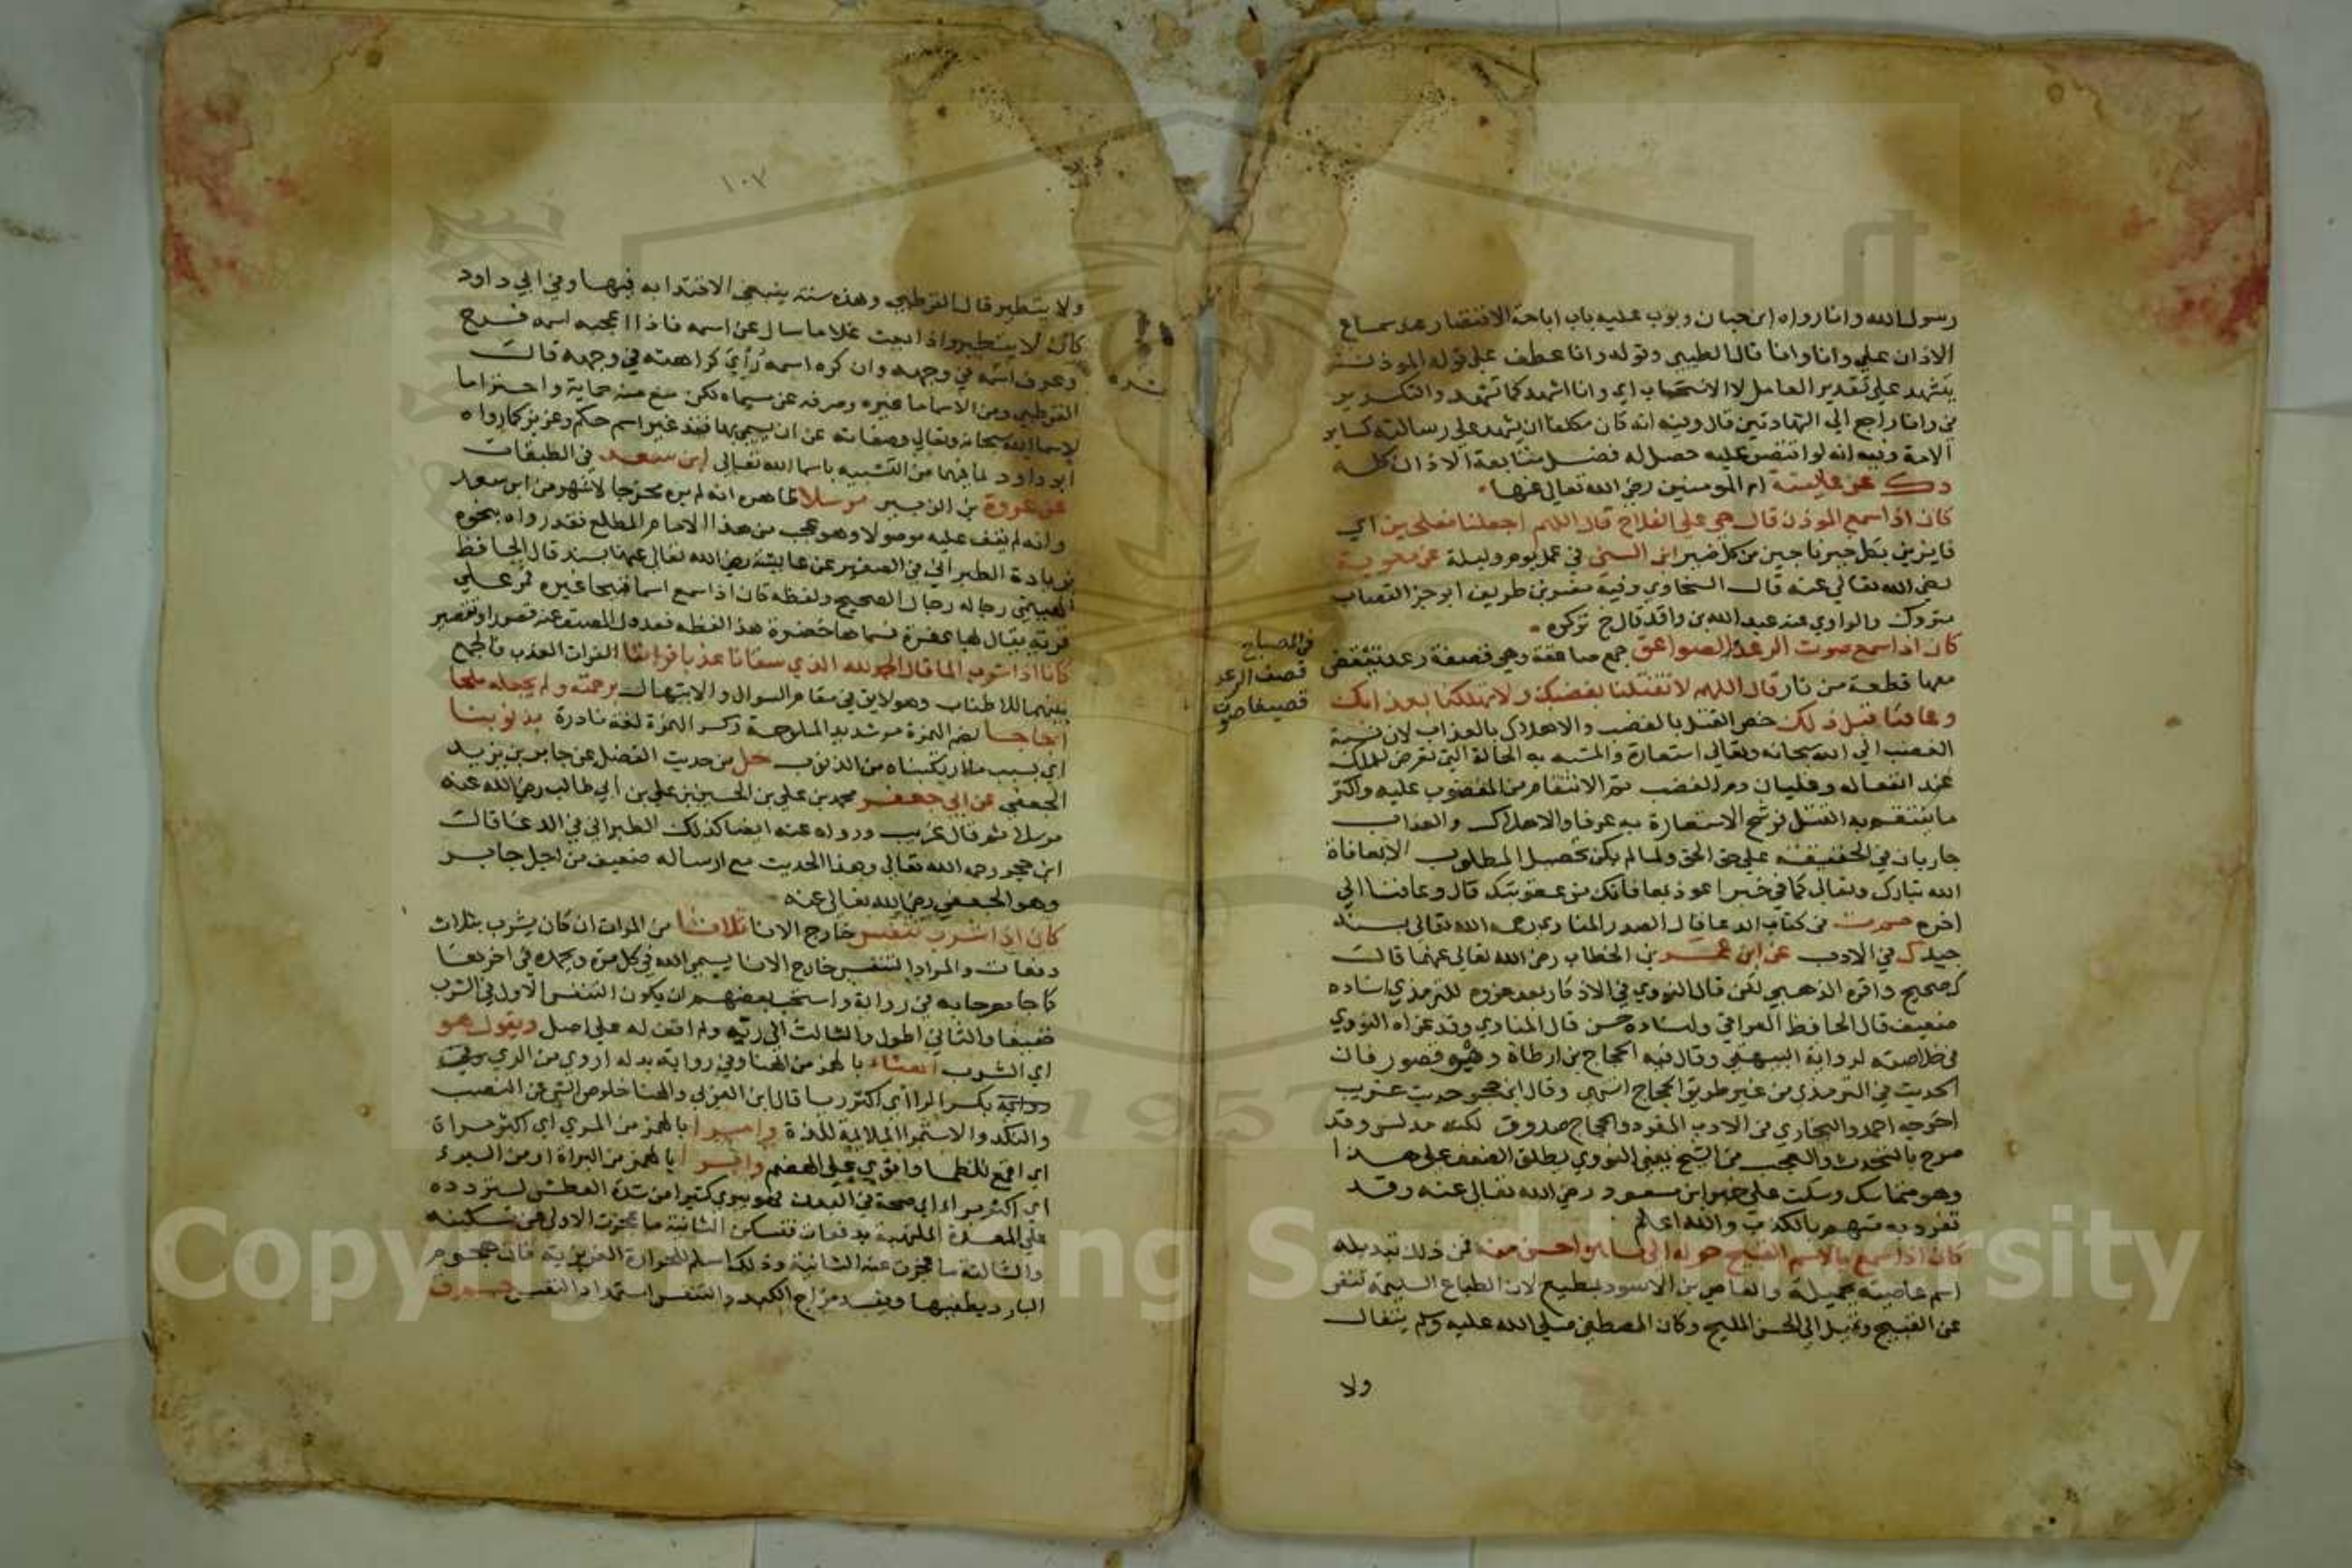 رسول الله وانا رواه ابن حبان وبوب عليه باب اباحة الاقتصار عند سماع
الاذان علي وانا وانا قال الطيبي وقوله وانا عطف علي قول الموذن
يتشهد علي تقدير العامل لا الانسحاب اي وانا اشهد كما تشهد والتكرير
في وانا راجع الي الشهادتين قال وفيه انه كان مكلفا ان يشهد علي رسالته كساير
الامة وفيه انه لو اقتصر عليه حصل له فضل متابعة الاذان كله
د ك عن عايشة ام المومنين رضي الله تعالي عنها
كان اذا سمع الموذن قال حي علي الفلاح قال اللهم اجعلنا مفلحين اي
فايزين بكل خير ناجين من كل ضير ابن السني في عمل يوم وليلة عن معوية
رضي الله تعالي عنه قال السخاوي وفيه نصر بن طريف ابو جز القصاب
متروك والراوي عنه عبد الله بن واقد قال خ تركوه
كان اذا سمع صوت الرعد والصواعق جمع صاعقة وهي قصفة رعد تنقض
معها قطعة من نار قال اللهم لا تقتلنا بغضبك ولا تهلكنا بعذابك
وعافنا قبل ذلك خص القتل بالغضب والاهلاك بالعذاب لان نسبة
الغضب الي الله سبحانه وتعالي استعارة والمشبه به الحالة التي تعرض للملك
عند انفعاله وغليان دم الغضب ثم الانتقام من المغضوب عليه واكثر
ما ينتقم به القتل فرشح الاستعارة به عرفا والاهلاك والعذاب
جاريان في الحقيقة علي حق الحق ولما لم يكن تحصيل المطلوب الا بمعافاة
الله تبارك وتعالي كما في خبر اعوذ بمعافاتك من عقوبتك قال وعافنا الي
اخره حم ت في كتاب الدعا قال الصدر المناوي رحمه الله تعالي بسند
جيد ك في الادب عن ابن عمر بن الخطاب رضي الله تعالي عنهما قال
ك صحيح واقره الذهبي لكن قال النووي في الاذكار بعد عزوه للترمذي اسناده
ضعيف قال الحافظ العراقي واسناده حسن قال المناوي وقد عزاه النووي
في خلاصته لرواية البيهقي وقال فيه الحجاج بن ارطاة وهو قصور فان
الحديث في الترمذي من غير طريق الحجاج انتهي وقال ابن حجر حديث غريب
اخرجه احمد والبخاري في الادب المفرد والحجاج صدوق لكنه مدلس وقد
صرح بالتحديث والعجب من الشيخ يعني النووي يطلق الضعف علي هذا
وهو متماسك وسكت علي خبر ابن مسعود رضي الله تعالي عنه وقد
تفرد به متهم بالكذب والله اعلم
كان اذا سمع بالاسم القبيح حوله الي ما هو احسن منه فمن ذلك تبديله
اسم عاصية بجميلة والعاصي بن الاسود بمطيع لان الطباع السليمة تنفر
عن القبيح وتميل الي الحسن المليح وكان المصطفي صلي الله عليه وسلم يتفال
ولا
في المصباح
قصف الرعد
قصيفا صوت
١٠٣
ولا يتطير قال القرطبي وهذه سنة ينبغي الاقتدا به فيها وفي ابي داود
كان لا يتطير واذا بعث غلاما سال عن اسمه فاذا اعجبه اسمه فرح
وعرف اسمه في وجهه وان كره اسمه رأي كراهته في وجهه قال
القرطبي ومن الاسما ما غيره وصرفه عن مسماه لكن منع منه حماية واحتراما
لاسما الله سبحانه وتعالي وصفاته عن ان يسمي بها فقد غير اسم حكم وعزيز كما رواه
ابو داود لما فيها من التشبيه باسما الله تعالي ابن سعد في الطبقات
عن عروة بن الزبير مرسلا ظاهره انه لم يره مخرجا لاشهر من ابن سعد
وانه لم يقف عليه موصولا وهو عجب من هذا الامام المطلع فقد رواه بنحوه
بزيادة الطبراني في الصغير عن عايشة رضي الله تعالي عنها بسند قال الحافظ
الهيثمي رجاله رجال الصحيح ولفظه كان اذا سمع اسما قبيحا غيره فمر علي
قرية يقال لها عفرة فسماها خضرة هذا لفظه فعدول المصنف عنه قصور او تقصير
كان اذا شرب الما قال الحمد لله الذي سقانا عذبا فراتا الفرات العذب فالجمع
بينهما للاطناب وهو لايق في مقام السوال والابتهال برحمته ولم يجعله ملحا
اجاجا بضم الهمزة مر شديد الملوحة وكسر الهمزة لغة نادرة بذنوبنا
اي بسبب ما ارتكبناه من الذنوب حل من حديث الفضل عن جابر بن يزيد
الجعفي عن ابي جعفر محمد بن علي بن الحسين بن علي بن ابي طالب رضي الله عنه
مرسلا ثم قال غريب ورواه عنه ايضا كذلك الطبراني في الدعا قال
ابن حجر رحمه الله تعالي وهذا الحديث مع ارساله ضعيف من اجل جابر
وهو الجعفي رضي الله تعالي عنه
كان اذا شرب تنفس خارج الانا ثلاثا من المرات ان كان يشرب بثلاث
دفعات والمراد التنفس خارج الانا يسمي الله في كل مرة ويحمده في اخرها
كما جا مصرحا به في رواية واستحب بعضهم ان يكون التنفس الاول في الشرب
خفيفا والثاني اطول والثالث الي ريه ولم اقف له علي اصل ويقول هو
اي الشرب اهناء بالهمز من الهنا وفي رواية بدله اروي من الري وفي
رواية بكسر الرا اي اكثر ريا قال ابن العربي والهنا خلوص الشي عن النصب
والنكد والاستمرا الملايمة للذة وامرا بالهمز من المري اي اكثر مراة
اي اقمع للظما واقوي علي الهضم وابرا بالهمز من البراة او من البرء
اي اكثر برءا اي صحة في البدن فهو يبري كثيرا من شدة العطش لتردده
علي المعدة الملتهبة بدفعات فتسكن الثانية ما عجزت الاولي عن تسكينه
والثالثة ما عجزت عنه الثانية وذلك اسلم للحرارة الغريزية فان هجوم
البارد يطفيها ويفسد مزاج الكبد والتنفس استمداد النفس حم ق